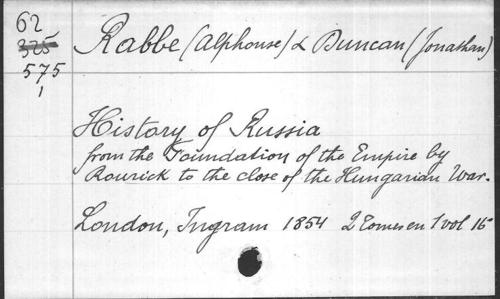 62
325
575
1
Rabbe (Alphonse) & Duncan (Jonathan)
History of Russia
from the Foundation of the Empire by
Rourick to the close of the Hungarian War.
London, Ingram 1854 2 tomes en 1 vol 16°